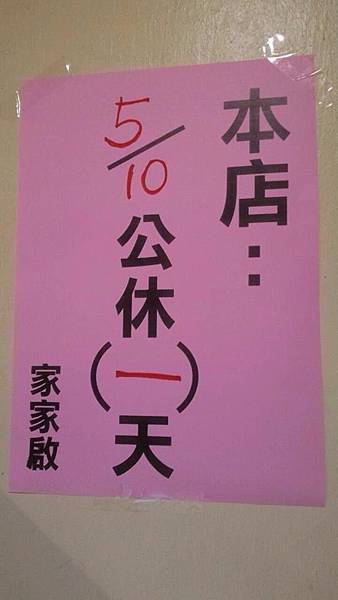 本店：
5/10公休(一)天
家家啟